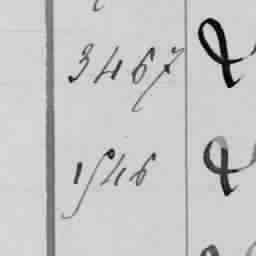 3467
1546